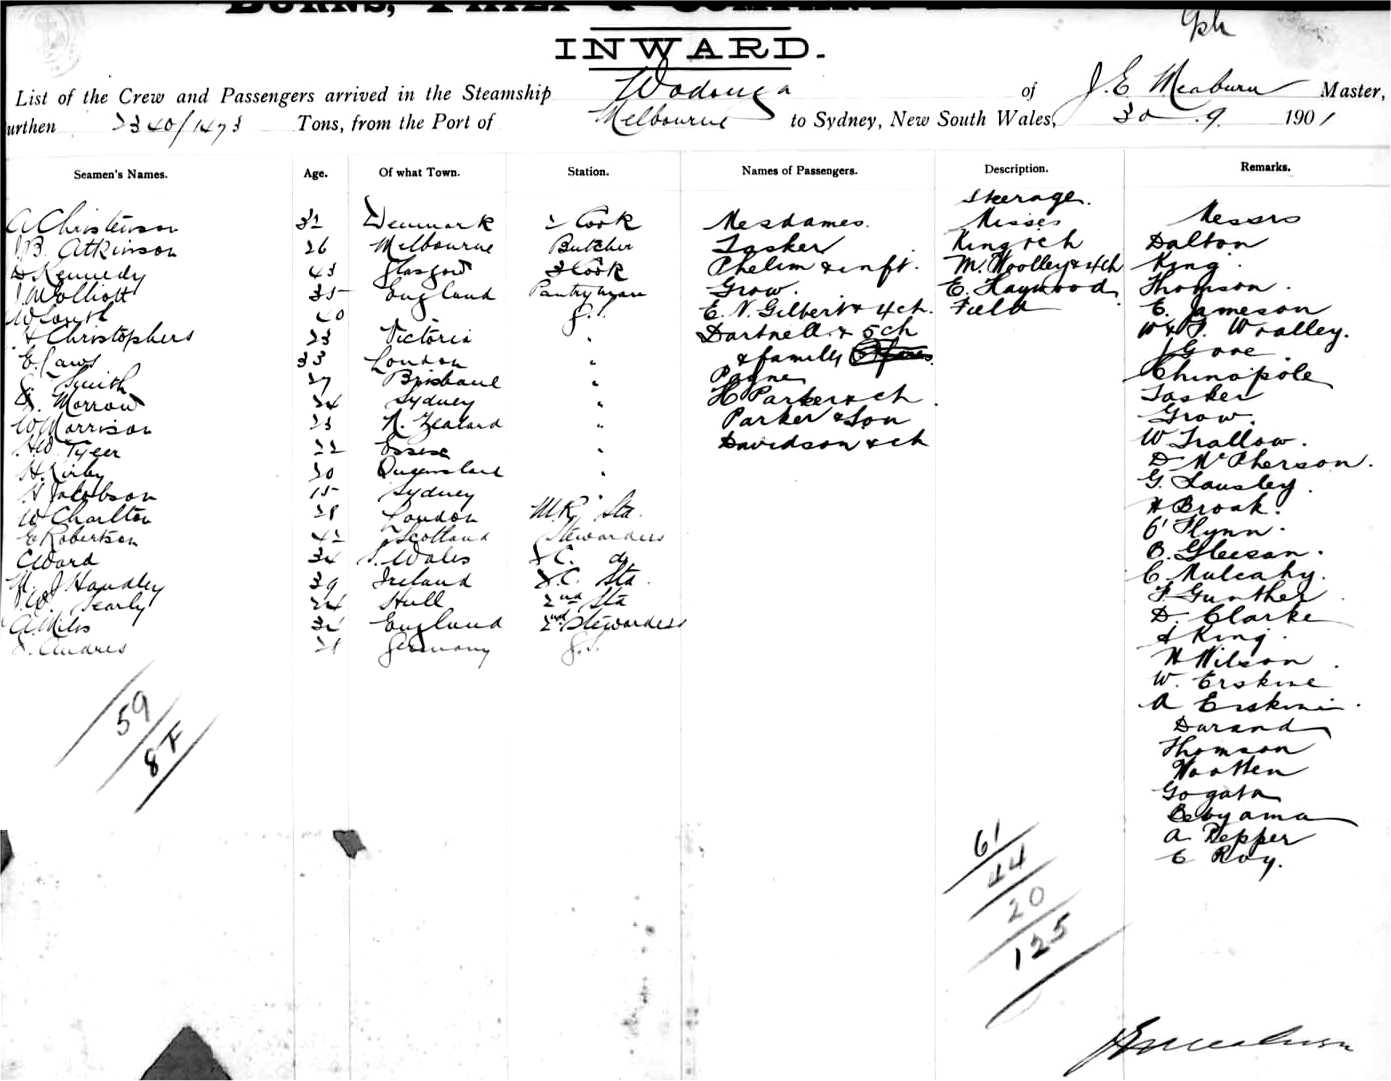 BURNS, PHILP & COMPANY
INWARD.
List of the Crew and Passengers arrived in the Steamship Wodonga of J. E. Meaburn Master,
urthen 2340/1473 Tons, from the Port of Melbourne to Sydney, New South Wales, 30 . 9. 1901
Seamen's Names. Age. Of what Town. Station. Names of Passengers. Description. Remarks.
Steerage.
A Christenson 32 Denmark 2 Cook Mesdames. Misses Messrs
J B. Atkinson 26 Melbourne Butcher Tasker King & ch Dalton
D Kennedy 43 Glasgow 3 Cook Phelim & inft. M. Woolley & 4 ch King.
35 England Pantryman Grow. E. Haywood Thomson.
W South 40 G.S. E. N. Gilbert & 4 ch. Field E. Jameson
Christophers 23 Victoria " Dartnell & 5 ch W & J. Woolley.
E. Laws 33 London " & family J Gore.
Smith 27 Brisbane " Payne Chinapole
Morrow 24 Sydney " H Parker & ch. Tasker
W Morrison 23 N. Zealand " Parker & Son Grow.
Tyger 22 Essex " Davidson & ch W Trallow.
H. Kirby 20 Queensland " D McPherson.
Jacobson 15 Sydney " G. Lousley.
W Charlton 28 London M.R. Sta. H Brook.
E Robertson 42 Scotland Stewardess O'Flynn.
C Ward 34 S. Wales F C. do B. Gleeson.
M. J Handley 39 Ireland F.C. Sta. C. Mulcahy.
24 Hull 2nd Sta F Gunther.
A. Miles 34 England 2nd Stewardess D. Clarke
Andres 21 Germany G.S. A King.
H Wilson.
W. Erskine
A Erskine.
Durand
Thomson
Wootten
Gogata
Bebyama
A. Pepper
E Roy.
59
8 F
61
44
20
125
J E Meaburn